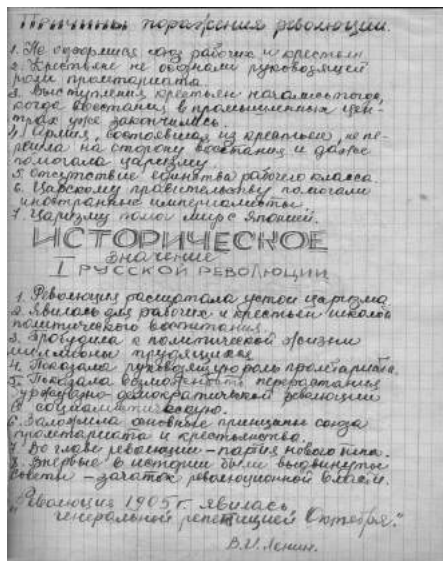 Причины поражения революции.
1. Не оформился союз рабочих и крестьян
2. Крестьяне не осознали руководящей
роли пролетариата.
3. Выступления крестьян начались тогда,
когда восстания в промышленных цен-
трах уже закончились.
4. Армия, состоявшая из крестьян, не пе-
решла на сторону восстания и даже
помогала царизму.
5. Отсутствие единства рабочего класса
6. Царскому правительству помогали
иностранные империалисты.
7. Царизму помог мир с Японией.
ИСТОРИЧЕСКОЕ
значение
I РУССКОЙ РЕВОЛЮЦИИ
1. Революция расшатала устои царизма
2. Явилась для рабочих и крестьян школой
политического воспитания.
3. Пробудила к политической жизни
миллионы трудящихся
4. Показала руководящую роль пролетариата.
5. Показала возможность перерастания
буржуазно-демократической революции
в социалистическую.
6. Заложила основные принципы союза
пролетариата и крестьянства.
7. Во главе революции - партия нового типа.
8. Впервые в истории были выдвинуты
советы - зачаток революционной власти.
"Революция 1905 г. явилась
генеральной репетицией Октября."
В.И. Ленин.